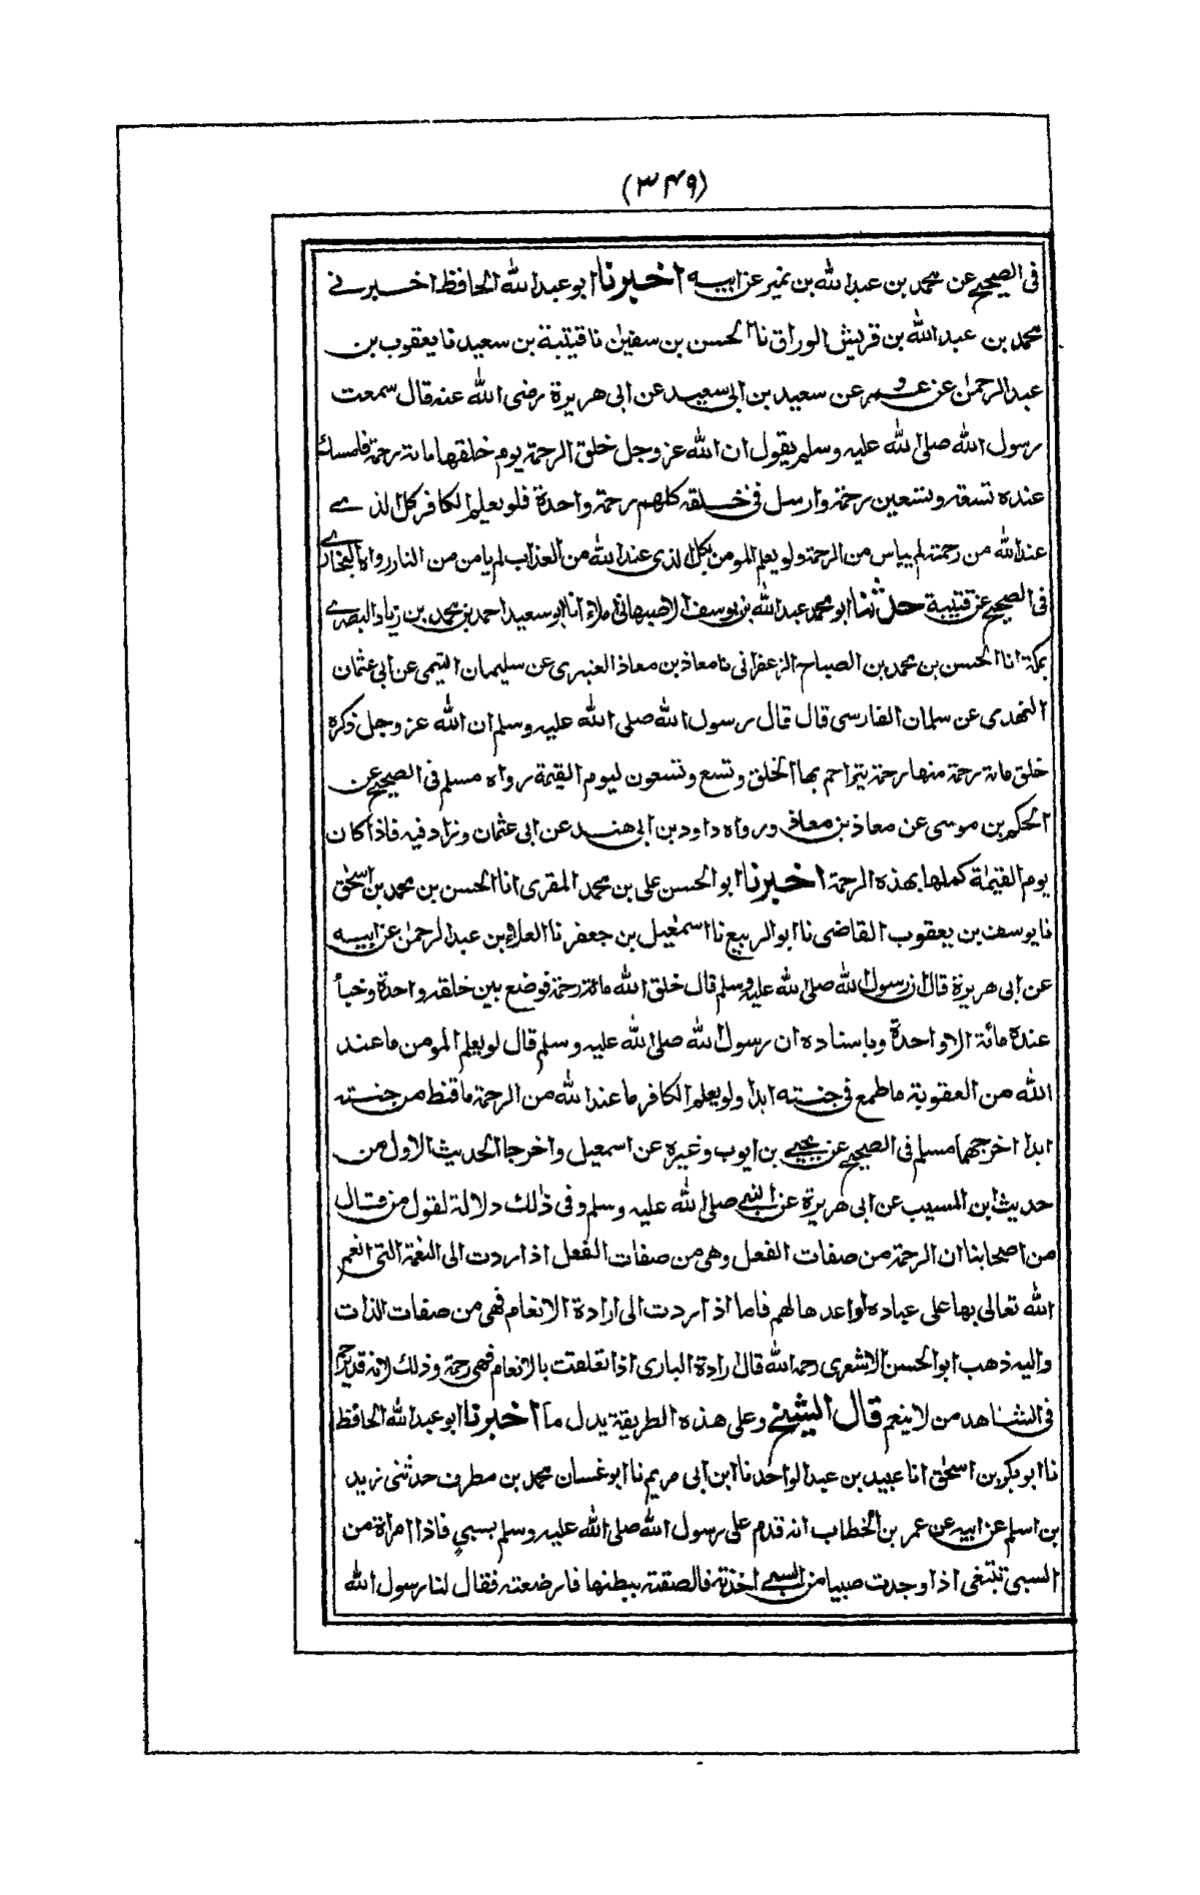 (۳۴۹)
فى الصحيح عن محمد بن عبد الله بن نمير عن ابيه اخبرنا ابو عبد الله الحافظ اخبرنے
محمد بن عبد الله بن قريش الوراق نا الحسن بن سفين نا قتيبة بن سعيد نا يعقوب بن
عبد الرحمن عن عمرو عن سعيد بن ابى سعيد عن ابى هريرة رضى الله عنه قال سمعت
رسول الله صلى الله عليه وسلم يقول ان الله عز وجل خلق الرحمة يوم خلقها مائة رحمة فامسك
عنده تسعة وتسعين رحمة وارسل فى خلقه كلهم رحمة واحدة فلو يعلم الكافر كل الذے
عند الله من رحمته لم يياس من الرحمة ولو يعلم المومن بكل الذى عند الله من العذاب لم يامن من النار رواه البخارے
فى الصحيح عن قتيبة حدثنا ابو محمد عبد الله بن يوسف الاصبهانى املاء انا ابو سعيد احمد بن محمد بن زياد البصرے
بمكة انا الحسن بن محمد بن الصباح الزعفرانى نا معاذ بن معاذ العنبرى عن سليمان التيمى عن ابى عثمان
النهدى عن سلمان الفارسى قال قال رسول الله صلى الله عليه وسلم ان الله عز وجل ذكره
خلق مائة رحمة منها رحمة يتراحم بها الخلق وتسع وتسعون ليوم القيمة رواه مسلم فى الصحيح عن
الحكم بن موسى عن معاذ بن معاذ ورواه داود بن ابى هند عن ابى عثمان وزاد فيه فاذا كان
يوم القيمة كملها بهذه الرحمة اخبرنا ابو الحسن على بن محمد المقرى انا الحسن بن محمد بن اسحٰق
نا يوسف بن يعقوب القاضى نا ابو الربيع نا اسمٰعيل بن جعفر نا العلاء بن عبد الرحمن عن ابيه
عن ابى هريرة قال ان رسول الله صلى الله عليه وسلم قال خلق الله مائة رحمة فوضع بين خلقه واحدة وخبأ
عنده مائة الا واحدة وباسناده ان رسول الله صلى الله عليه وسلم قال لو يعلم المومن ما عند
الله من العقوبة ما طمع فى جنته ابدا ولو يعلم الكافر ما عند الله من الرحمة ما قنط من جنته
ابدا اخرجهما مسلم فى الصحيح عن يحيى بن ايوب وغيره عن اسمعيل واخرجا الحديث الاول من
حديث ابن المسيب عن ابى هريرة عن النبى صلى الله عليه وسلم وفى ذالك دلالة لقول من قال
من اصحابنا ان الرحمة من صفات الفعل وهى من صفات الفعل اذا ردت الى النعمة التى انعم
الله تعالى بها على عباده او اعدها لهم فاما اذا ردت الى ارادة الانعام فهى من صفات الذات
واليه ذهب ابو الحسن الاشعرى رحمه الله قال ارادة البارى اذا تعلقت بالانعام فهى رحمة وذلك لانه قد يرحم
فى الشاهد من لا ينعم قال الشيخ وعلى هذه الطريقة يدل ما اخبرنا ابو عبد الله الحافظ
نا ابو بكر بن اسحٰق انا عبيد بن عبد الواحد نا ابن ابى مريم نا ابو غسان محمد بن مطرف حدثنى زيد
بن اسلم عن ابيه عن عمر بن الخطاب انه قدم على رسول الله صلى الله عليه وسلم بسبى فاذا امراة من
السبى تبتغى اذا وجدت صبيا من السبى اخذته فالصقته ببطنها فارضعته فقال لنا رسول الله